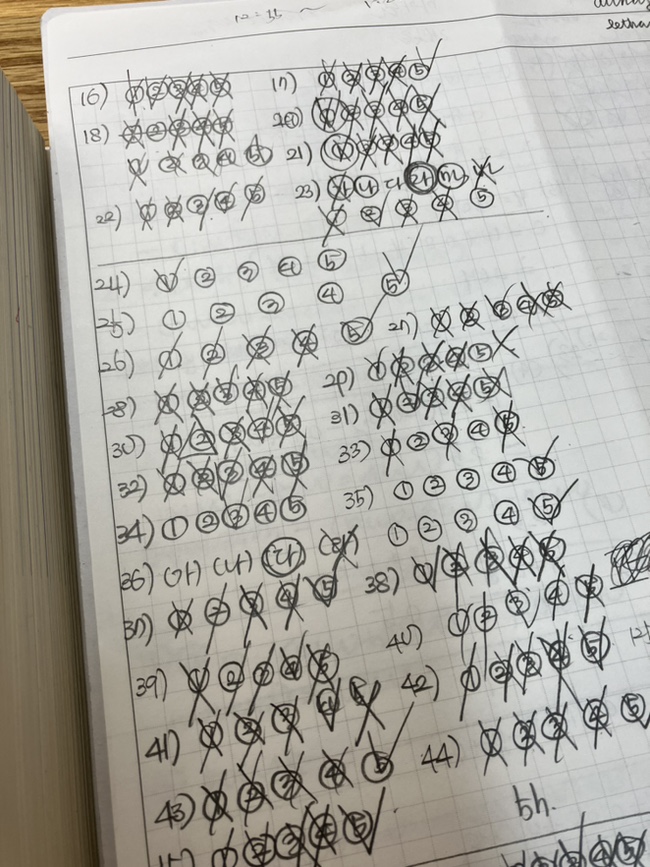 16) ① ② ③ ④ ⑤ 17) ① ② ③ ④ ⑤
18) ① ② ③ ④ ⑤ 20) ① ② ③ ④ ⑤
① ② ③ ④ ⑤ 21) ① ② ③ ④ ⑤
22) ① ② ③ ④ ⑤ 23) 가 나 다 라 마
① ② ③ ④ ⑤
24) ① ② ③ ④ ⑤
25) ① ② ③ ④ ⑤
26) ① ② ③ ④ ⑤ 27) ① ② ③ ④ ⑤
28) ① ② ③ ④ ⑤ 29) ① ② ③ ④ ⑤
30) ① ② ③ ④ ⑤ 31) ① ② ③ ④ ⑤
32) ① ② ③ ④ ⑤ 33) ① ② ③ ④ ⑤
34) ① ② ③ ④ ⑤ 35) ① ② ③ ④ ⑤
36) (가) (나) (다) (라) ① ② ③ ④ ⑤
37) ① ② ③ ④ ⑤ 38) ① ② ③ ④ ⑤
39) ① ② ③ ④ ⑤ 40) ① ② ③ ④ ⑤
41) ① ② ③ ④ ⑤ 42) ① ② ③ ④ ⑤
43) ① ② ③ ④ ⑤ 44) ① ② ③ ④ ⑤
45) ① ② ③ ④ ⑤